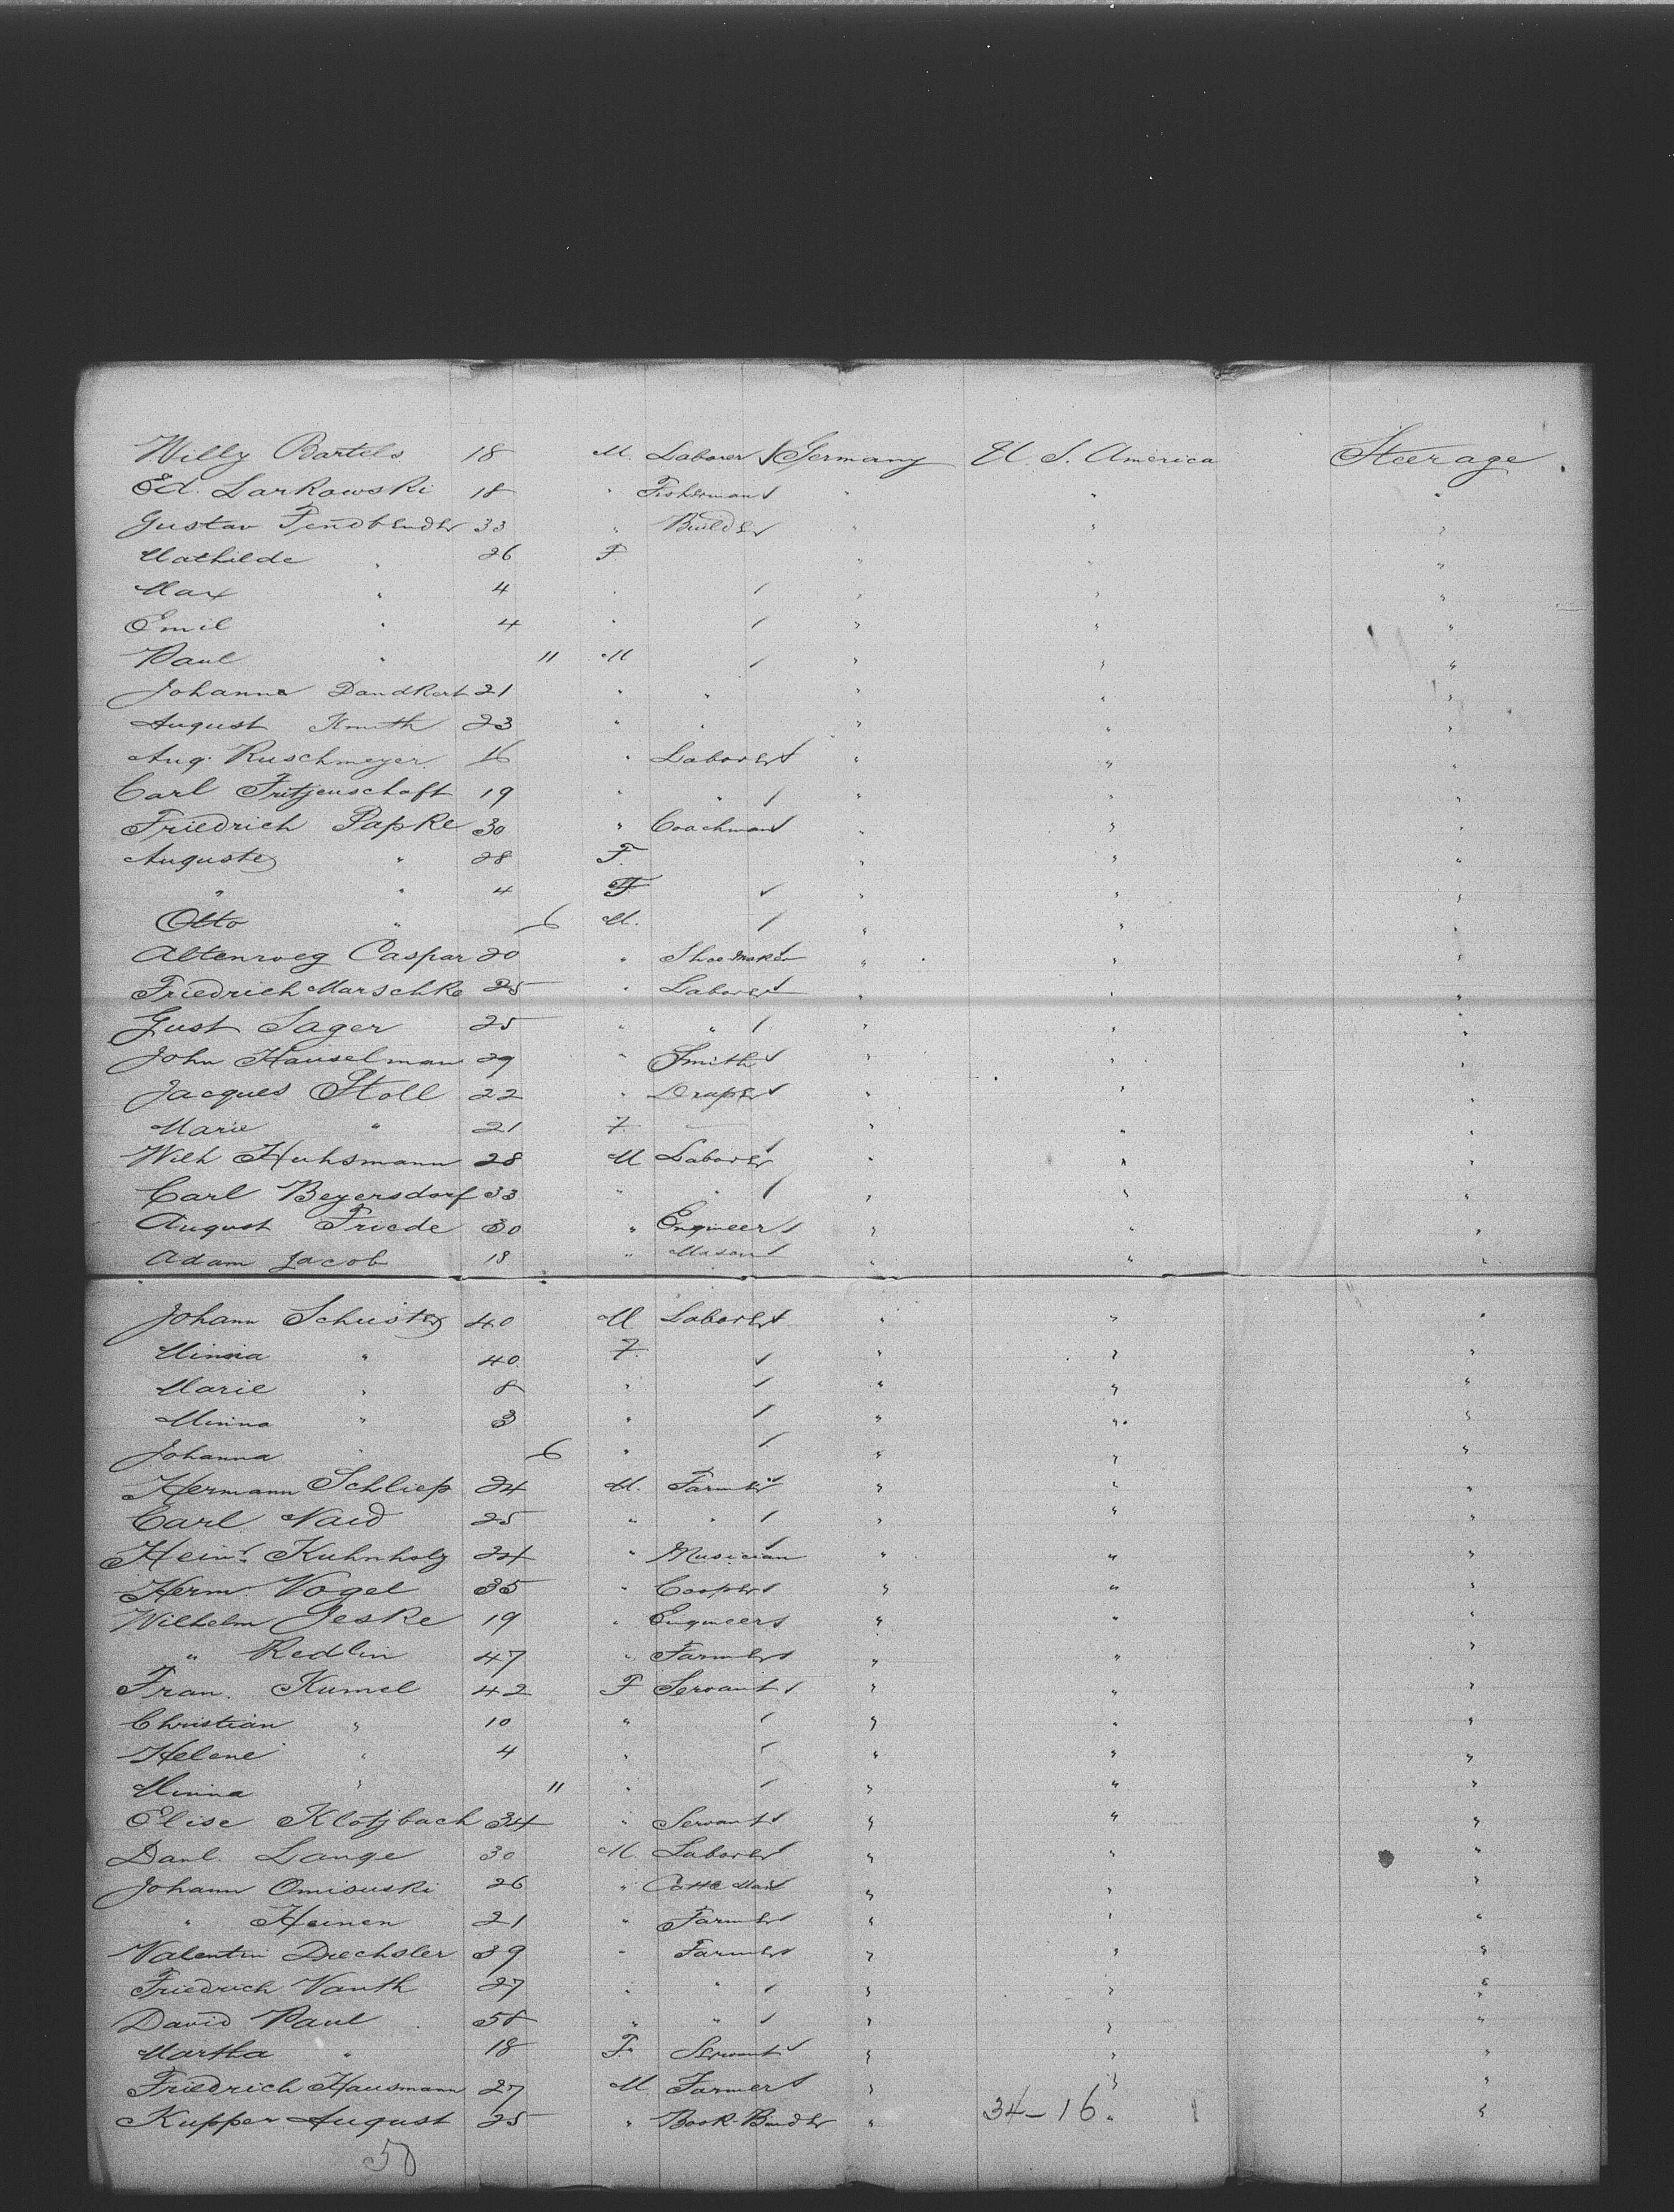 Willy Bartels 18 M. Laborer Germany U. S. America Steerage
Ed. Larkowski 18 " Fisherman " " "
Gustav 33 " Builder " " "
Mathilde " 26 F " " "
Max " 4 " " " "
Emil " 4 " " " "
Paul " 11 M " " "
Johanne Dandkert 21 " " " " "
August Kmuth 23 " " " " "
Aug. Ruschmeyer 16 " Laborer " " "
Carl Fritzenschaft 19 " " " " "
Friedrich Papke 30 " Coachman " " "
Auguste " 28 F. " " "
" " 4 F " " "
Otto " 6 M. " " "
Altenweg Caspar 20 " Shoemaker " " "
Friedrich Marschke 25 " Laborer " " "
Gust Sager 25 " " " " "
John Hauselman 29 " Smith " " "
Jacques Stoll 22 " Draper " " "
Marie " 21 F. " " "
Wilh Huhsmann 28 M Laborer " " "
Carl Beyersdorf 33 " " " " "
August Friede 30 " Engineer " " "
Adam Jacob 18 " Mason " " "
Johann Schuster 40 M Laborer " " "
Minna " 40 F. " " "
Marie " 8 " " " "
Minna " 3 " " " "
Johanna " 6 " " " "
Hermann Schliep 24 M. Farmer " " "
Carl Naid 25 " " " " "
Heinr. Kuhnholz 24 " Musician " " "
Herm. Vogel 35 " Cooper " " "
Wilhelm Jeske 19 " Engineer " " "
" Redlin 47 " Farmer " " "
Fran. Kumel 42 F Servant " " "
Christian " 10 " " " "
Helene " 4 " " " "
Minna " 11 " " " "
Elise Klotzbach 34 " Servant " " "
Danl. Lange 30 M. Laborer " " "
Johann Omisuski 26 " " " "
" Heinen 21 " Farmer " " "
Valentin Drechsler 39 " Farmer " " "
Friedrich Vanth 27 " " " " "
David Paul 58 " " " " "
Martha " 18 F. Servant " " "
Friedrich Hausmann 27 M. Farmer " " "
Kupper August 25 " Book-Binder " 34-16 " "
50